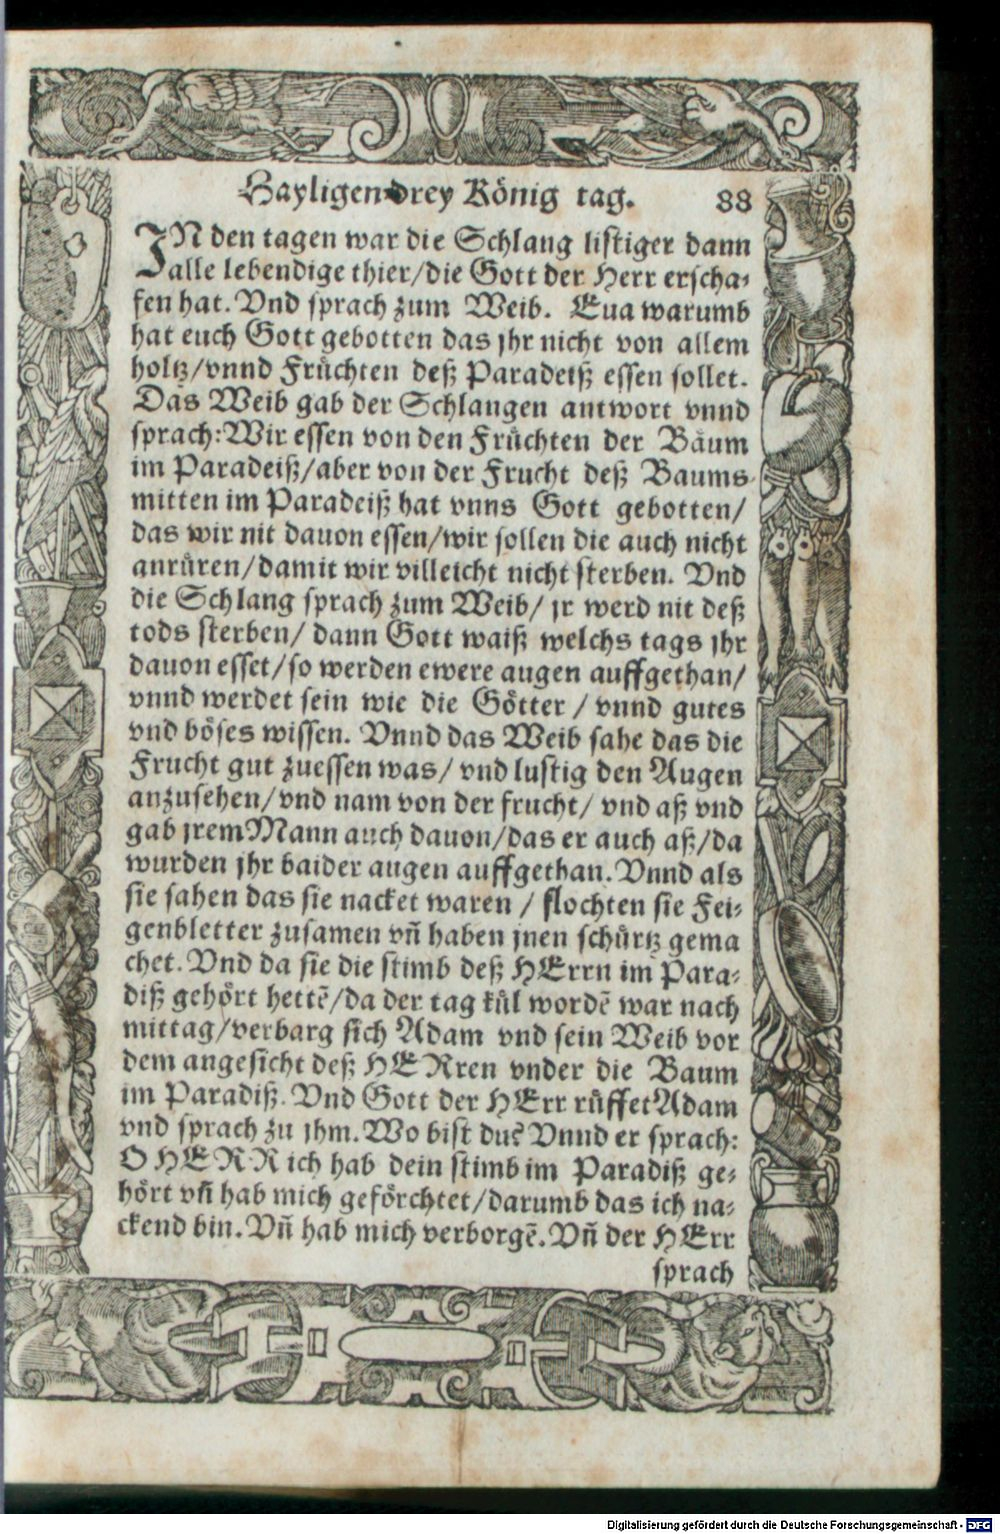 Hayligen drey König tag. 88
IN den tagen war die Schlang listiger dann
alle lebendige thier/die Gott der Herr erscha⸗
fen hat. Vnd sprach zum Weib. Eua warumb
hat euch Gott gebotten das jhr nicht von allem
holtz/vnnd Früchten deß Paradeiß essen sollet.
Das Weib gab der Schlangen antwort vnnd
sprach: Wir essen von den Früchten der Bäum
im Paradeiß/aber von der Frucht deß Baums
mitten im Paradeiß hat vnns Gott gebotten/
das wir nit dauon essen/wir sollen die auch nicht
anrüren/damit wir villeicht nicht sterben. Vnd
die Schlang sprach zum Weib/ jr werd nit deß
tods sterben/ dann Gott waiß welchs tags jhr
dauon esset/so werden ewere augen auffgethan/
vnnd werdet sein wie die Götter / vnnd gutes
vnd böses wissen. Vnnd das Weib sahe das die
Frucht gut zuessen was/ vnd lustig den Augen
anzusehen/vnd nam von der frucht/ vnd aß vnd
gab jrem Mann auch dauon/das er auch aß/da
wurden jhr baider augen auffgethan. Vnnd als
sie sahen das sie nacket waren / flochten sie Fei⸗
genbletter zusamen vñ haben jnen schürtz gema
chet. Vnd da sie die stimb deß HErrn im Para⸗
diß gehört hettē/da der tag kül wordē war nach
mittag/verbarg sich Adam vnd sein Weib vor
dem angesicht deß HERren vnder die Baum
im Paradiß. Vnd Gott der HErr rüffet Adam
vnd sprach zu jhm. Wo bist du? Vnnd er sprach:
O HERR ich hab dein stimb im Paradiß ge⸗
hört vñ hab mich geförchtet/darumb das ich na⸗
ckend bin. Vñ hab mich verborgē. Vñ der HErr
sprach
Digitalisierung gefördert durch die Deutsche Forschungsgemeinschaft - DFG